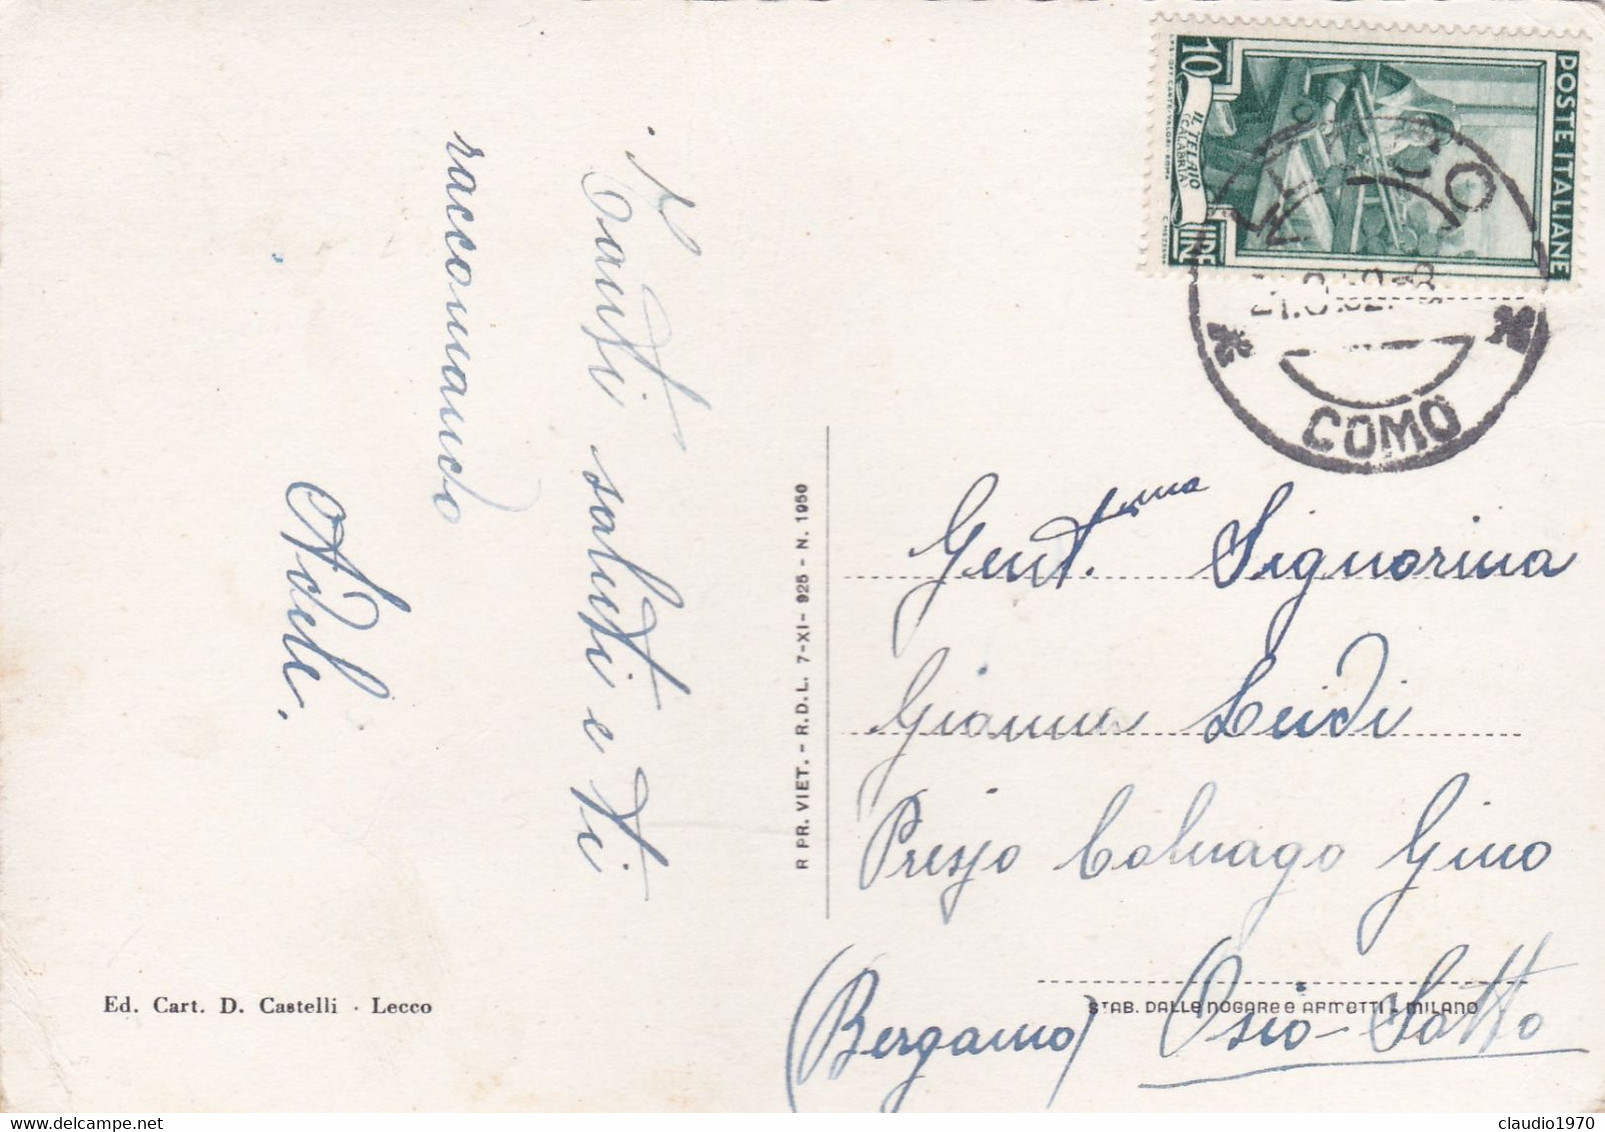 Tanti saluti e ti
raccomando
Adele.
Ed. Cart. D. Castelli - Lecco
R PR. VIET. - R.D.L. 7-XI- 925 - N. 1950
POSTE ITALIANE
10
LIRE
IL TELAIO
(CALABRIA)
COMO
Gent.ma Signorina
Gianna Leidi
Presso Colnago Gino
Osio-Sotto
(Bergamo)
STAB. DALLE NOGARE E ARMETTI - MILANO
claudio1970